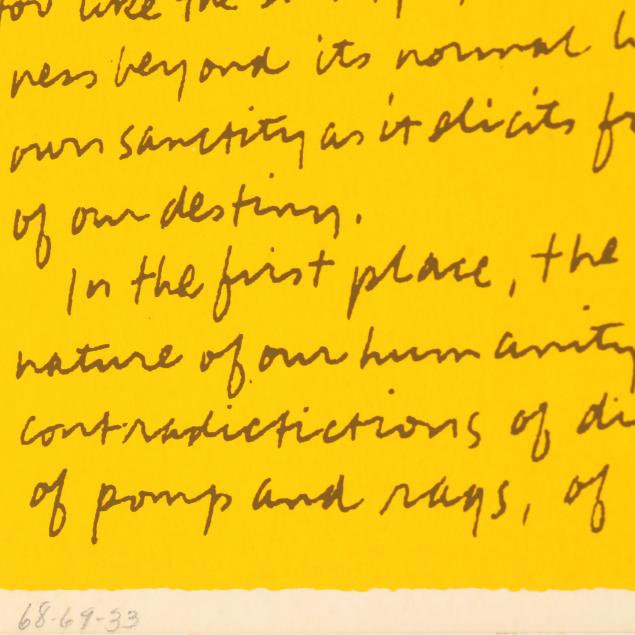 for like the
ness beyond its normal
own sanctity as it elicits
of our destiny.
In the first place, the
nature of our humanity
contradictictions of
of pomp and rags, of
68-69-33